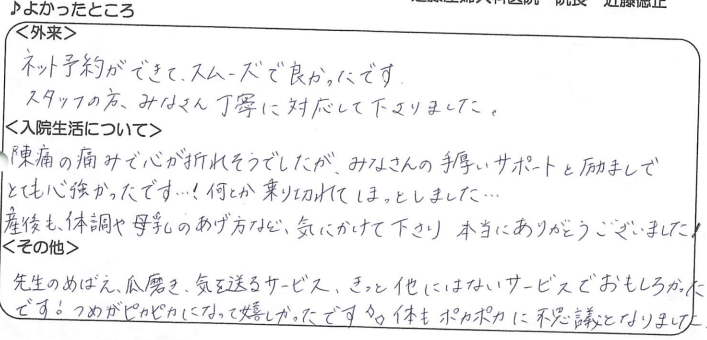 ♪よかったところ
近藤産婦人科医院 院長 近藤徳正
<外来>
ネット予約ができて、スムーズで良かったです。
スタッフの方、みなさん丁寧に対応して下さりました。
<入院生活について>
陣痛の痛みで心が折れそうでしたが、みなさんの手厚いサポートと励ましで
とても心強かったです…!何とか乗り切れてほっとしました…
産後も、体調や母乳のあげ方など、気にかけて下さり 本当にありがとうございました!
<その他>
先生のめばえ、爪磨き、気を送るサービス、きっと他にはないサービスでおもしろかった
です!つめがピカピカになって嬉しかったです 体もポカポカに不思議となりました。